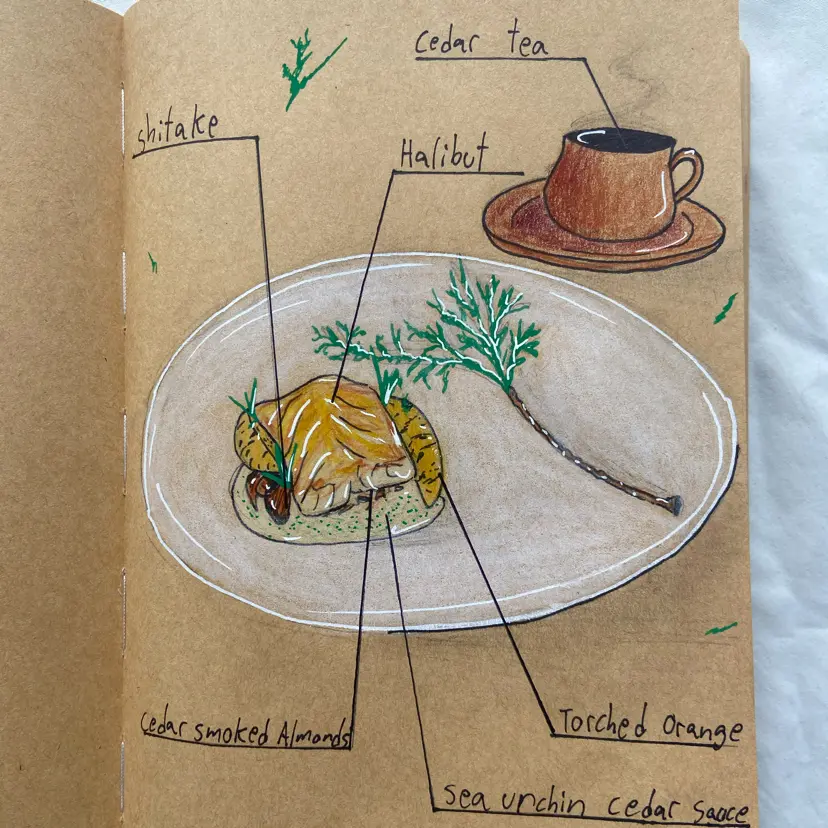 Cedar tea
shitake
Halibut
Cedar smoked Almonds
Torched Orange
Sea unchin cedar sauce